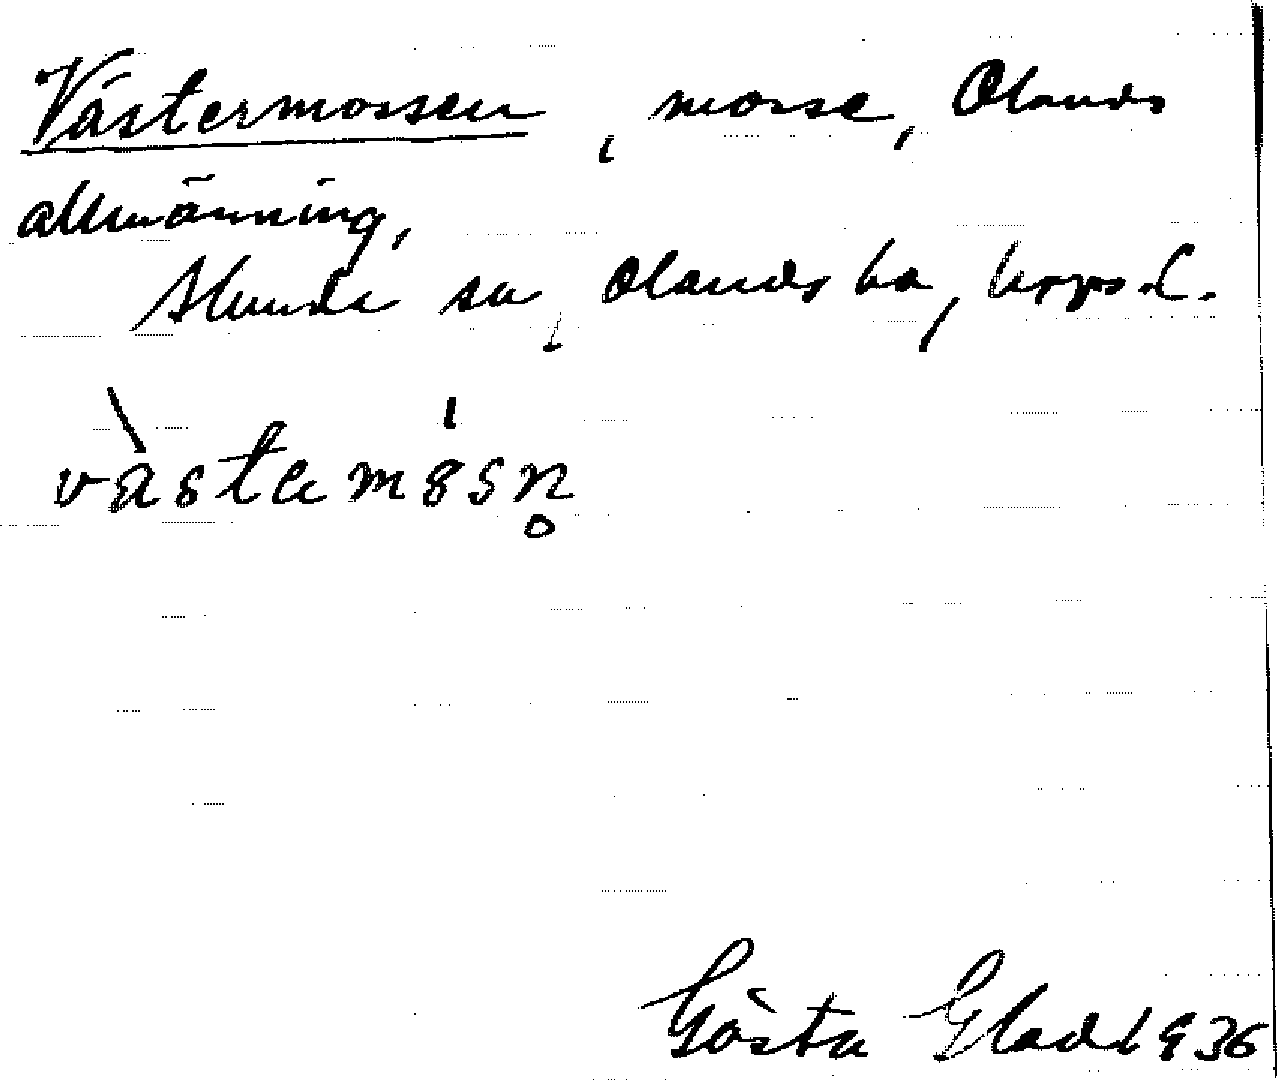 Västermossen, mosse, Olands
allmänning,
Alunda sn, Olands hd, Upps. l.
västamosn̥
Gösta Glad 1936